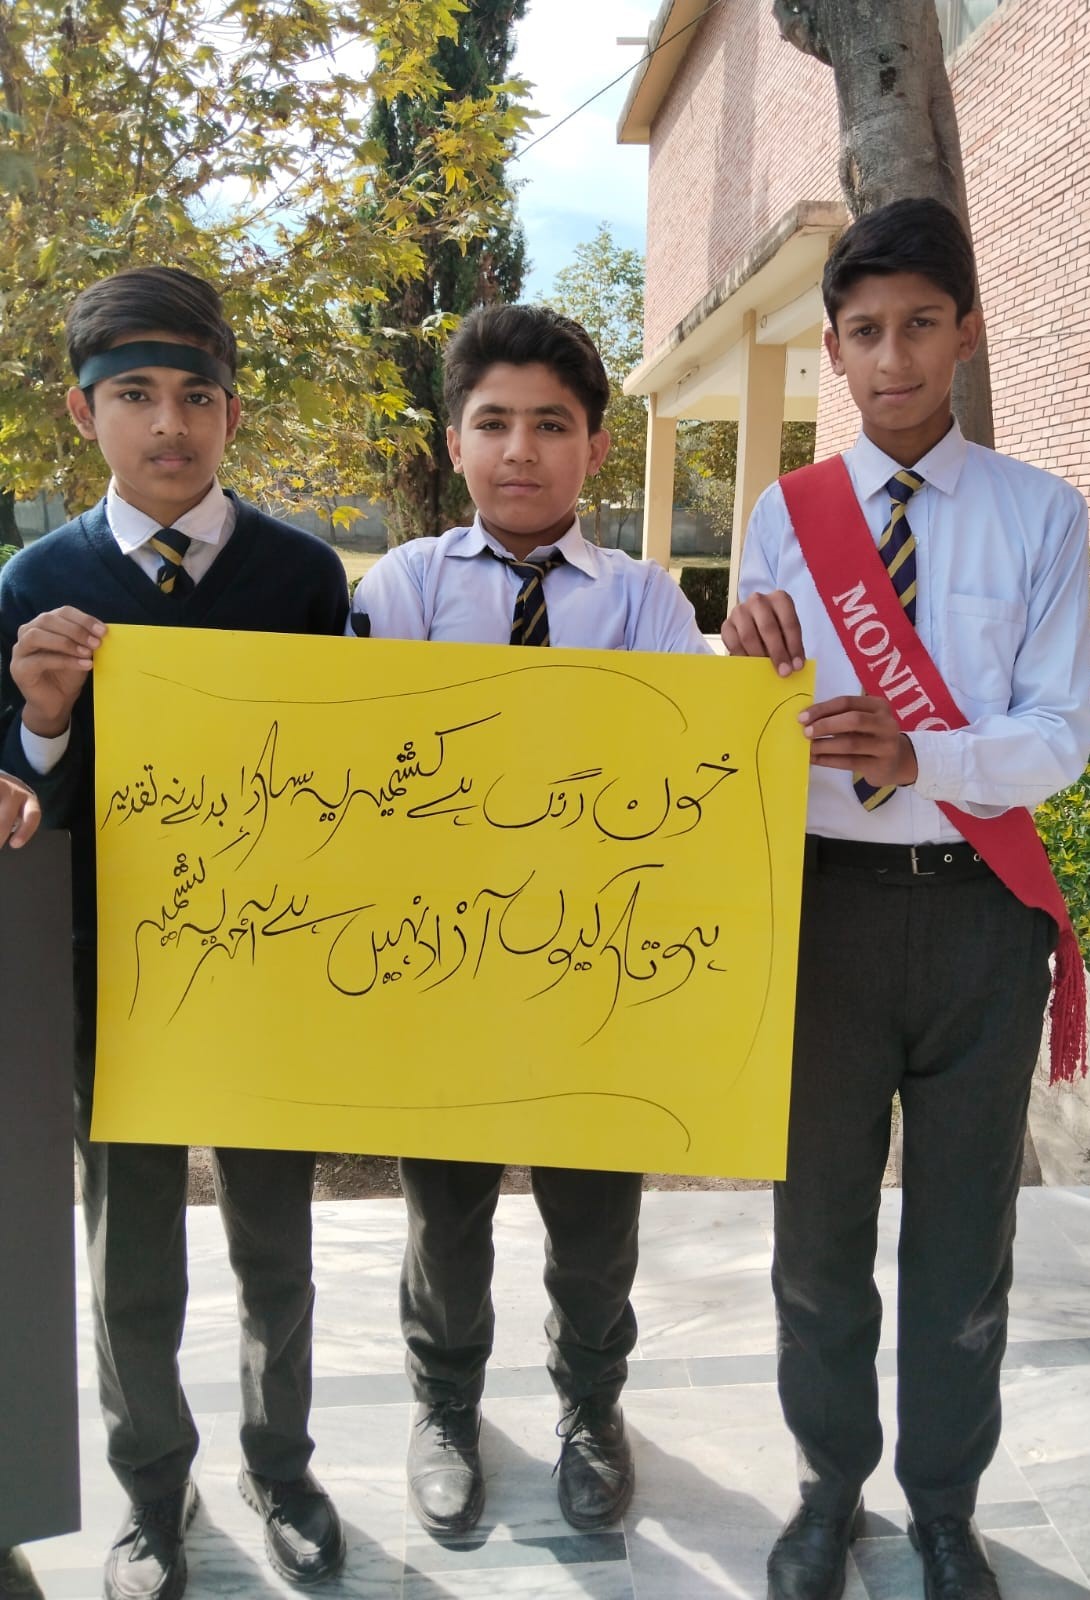 خون رنگ ہے کشمیر یہ سارا بدلے نہ تقدیر
ہوتا کیوں آزاد نہیں ہے آخر یہ کشمیر
MONITO